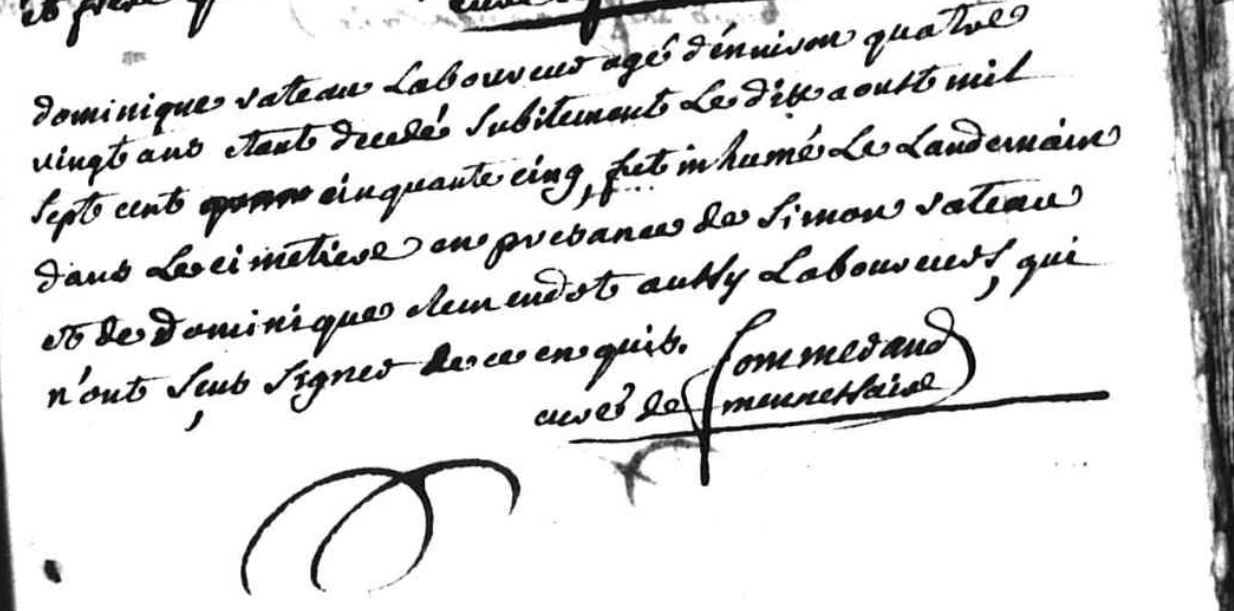 dominique rateau Laboureur agé d'énuiron quatre
vingt ans etant decedé Subitement Le dix aoust mil
Sept cent cinquante cinq, fut inhumé Le Landemain
dans Le cimetiere en presance de Simon rateau
et de Dominique aussy Laboureurs, qui
n'ont Sçus Signer de ce enquis.
Commerand
curé de mennessaire